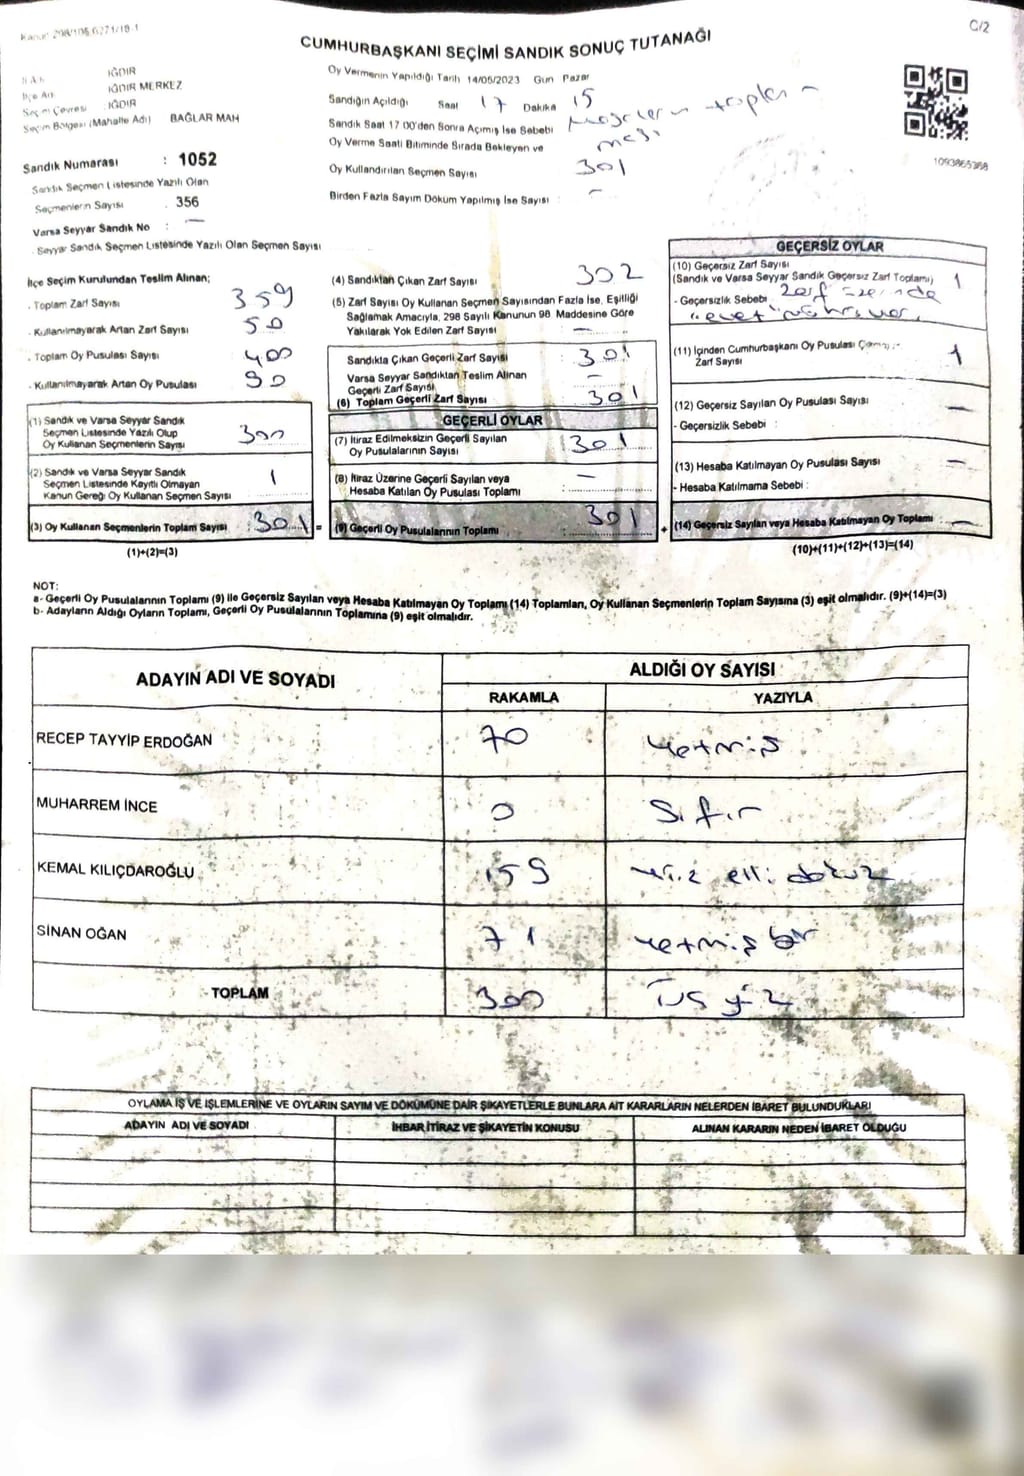 Kanun: 298/105,6271/19.1
C/2
CUMHURBAŞKANI SEÇİMİ SANDIK SONUÇ TUTANAĞI
İli Adı IĞDIR
İlçe Adı IĞDIR MERKEZ
Seçim Çevresi : IĞDIR
Seçim Bölgesi (Mahalle Adı) BAĞLAR MAH
Sandık Numarası : 1052
Sandık Seçmen Listesinde Yazılı Olan
Seçmenlerin Sayısı 356
Varsa Seyyar Sandık No : —
Seyyar Sandık Seçmen Listesinde Yazılı Olan Seçmen Sayısı
Oy Vermenin Yapıldığı Tarih 14/05/2023 Gun Pazar
Sandığın Açıldığı Saat 17 Dakika 15
Sandık Saat 17:00'den Sonra Açımış İse Sebebi
Oy Verme Saati Bitiminde Sırada Bekleyen ve
Oy Kullandırılan Seçmen Sayısı 301
Birden Fazla Sayım Döküm Yapılmış İse Sayısı : —
1093865368
İlçe Seçim Kurulundan Teslim Alınan;
- Toplam Zarf Sayısı 359
- Kullanılmayarak Artan Zarf Sayısı 50
- Toplam Oy Pusulası Sayısı 400
- Kullanılmayarak Artan Oy Pusulası 90
(1) Sandık ve Varsa Seyyar Sandık
Seçmen Listesinde Yazılı Olup
Oy Kullanan Seçmenlerin Sayısı 300
(2) Sandık ve Varsa Seyyar Sandık
Seçmen Listesinde Kayıtlı Olmayan
Kanun Gereği Oy Kullanan Seçmen Sayısı 1
(3) Oy Kullanan Seçmenlerin Toplam Sayısı : 301 =
(1)+(2)=(3)
(4) Sandıktan Çıkan Zarf Sayısı 302
(5) Zarf Sayısı Oy Kullanan Seçmen Sayısından Fazla İse, Eşitliği
Sağlamak Amacıyla, 298 Sayılı Kanunun 98. Maddesine Göre
Yakılarak Yok Edilen Zarf Sayısı : —
Sandıkta Çıkan Geçerli Zarf Sayısı : 301
Varsa Seyyar Sandıktan Teslim Alınan
Geçerli Zarf Sayısı —
(6) Toplam Geçerli Zarf Sayısı 301
GEÇERLİ OYLAR
(7) İtiraz Edilmeksizin Geçerli Sayılan
Oy Pusulalarının Sayısı 301
(8) İtiraz Üzerine Geçerli Sayılan veya
Hesaba Katılan Oy Pusulası Toplamı : —
(9) Geçerli Oy Pusulalarının Toplamı : 301 +
GEÇERSİZ OYLAR
(10) Geçersiz Zarf Sayısı
(Sandık ve Varsa Seyyar Sandık Geçersiz Zarf Toplamı) 1
- Geçersizlik Sebebi : Zarf üzerinde
"evet"
(11) İçinden Cumhurbaşkanı Oy Pusulası Çıkmayan
Zarf Sayısı 1
(12) Geçersiz Sayılan Oy Pusulası Sayısı —
- Geçersizlik Sebebi :
(13) Hesaba Katılmayan Oy Pusulası Sayısı —
- Hesaba Katılmama Sebebi :
(14) Geçersiz Sayılan veya Hesaba Katılmayan Oy Toplamı —
(10)+(11)+(12)+(13)=(14)
NOT:
a- Geçerli Oy Pusulalarının Toplamı (9) ile Geçersiz Sayılan veya Hesaba Katılmayan Oy Toplamı (14) Toplamları, Oy Kullanan Seçmenlerin Toplam Sayısına (3) eşit olmalıdır. (9)+(14)=(3)
b- Adayların Aldığı Oyların Toplamı, Geçerli Oy Pusulalarının Toplamına (9) eşit olmalıdır.
ADAYIN ADI VE SOYADI
ALDIĞI OY SAYISI
RAKAMLA YAZIYLA
RECEP TAYYİP ERDOĞAN 70 yetmiş
MUHARREM İNCE 0 sıfır
KEMAL KILIÇDAROĞLU 159 yüz elli dokuz
SİNAN OĞAN 71 yetmiş bir
TOPLAM 300 Üç yüz
OYLAMA İŞ VE İŞLEMLERİNE VE OYLARIN SAYIM VE DÖKÜMÜNE DAİR ŞİKAYETLERLE BUNLARA AİT KARARLARIN NELERDEN İBARET BULUNDUKLARI
ADAYIN ADI VE SOYADI İHBAR İTİRAZ VE ŞİKAYETİN KONUSU ALINAN KARARIN NEDEN İBARET OLDUĞU